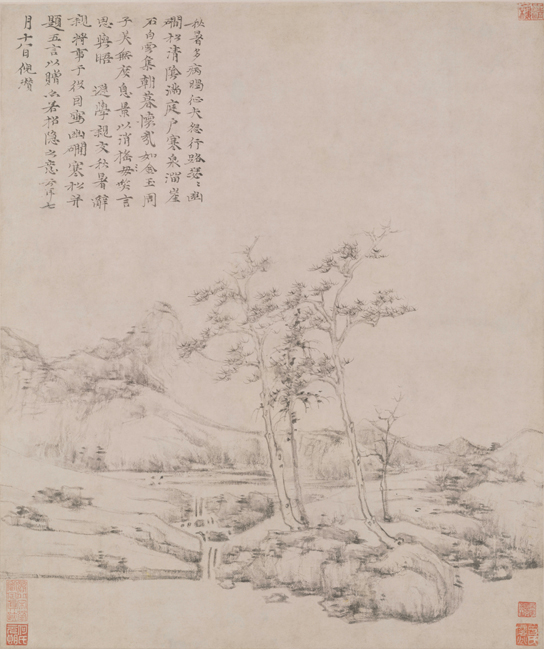 秋暑多病暍征夫怨行路瑟瑟幽
磵松清陰滿庭户寒泉溜崖
石白雲集朝暮懷哉如金玉周
子美無度息景以消搖笑言
思與晤 遜學親友秋暑辭
親將事于役因寫幽磵寒松并
題五言以贈亦若招隱之意云耳七
月十八日倪瓚